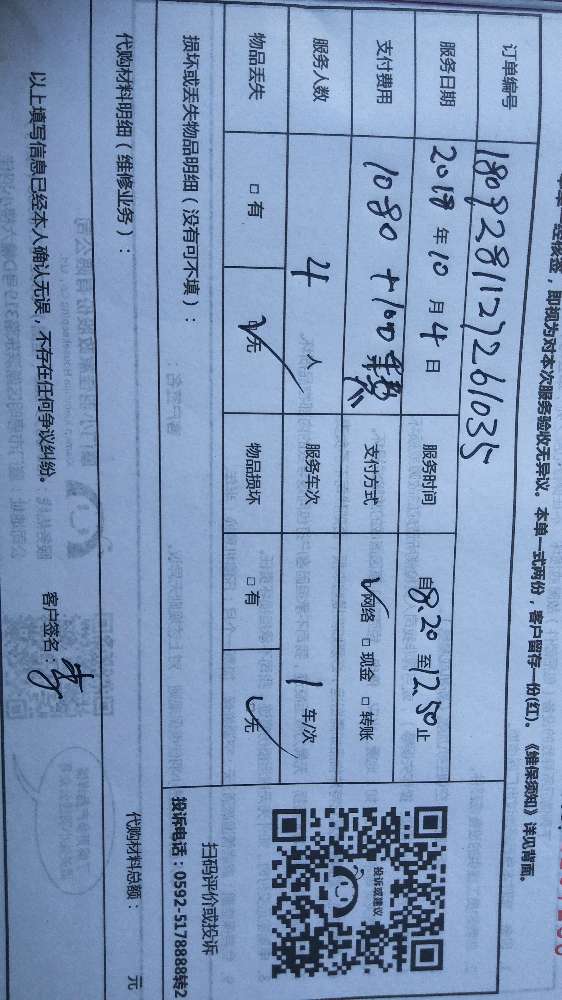 即视为对本次服务验收无异议。本单一式两份，客户留存一份(红)。《维保须知》详见背面。
订单编号 1809281127261035
服务日期 2018 年 10 月 4 日 服务时间 自8.20 至12.50止
支付费用 1080 +100 支付方式 ✓网络 □ 现金 □ 转账
服务人数 4 人 服务车次 1 车/次
物品丢失 □ 有 ✓无 物品损坏 □ 有 ✓无
损坏或丢失物品明细（没有可不填）：
投诉或建议
扫码评价或投诉
投诉电话：0592-5178888转2
代购材料明细（维修业务）： 代购材料总额： 元
以上填写信息已经本人确认无误，不存在任何争议纠纷。 客户签名：